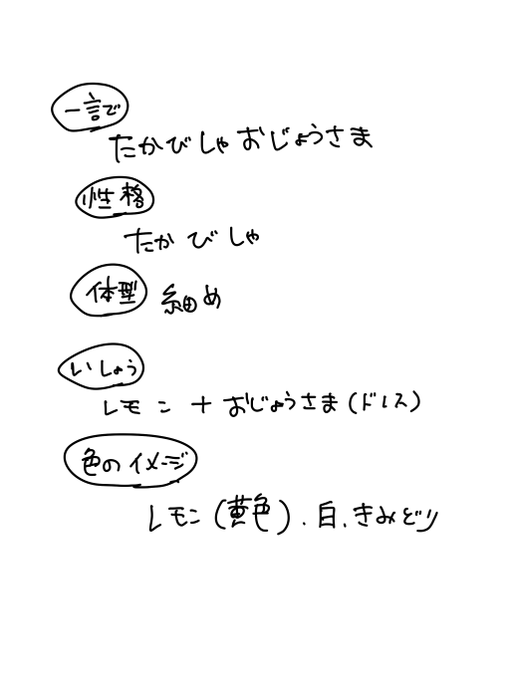 一言で
たかびしゃおじょうさま
性格
たかびしゃ
体型 細め
いしょう
レモン + おじょうさま(ドレス)
色のイメージ
レモン(黄色).白.きみどり